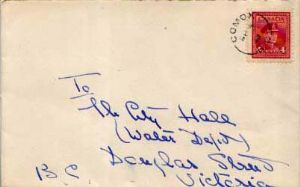 COMO
CANADA
4 4
To
The City Hall
(Water Dept)
Douglas Street
Victoria
B.C.